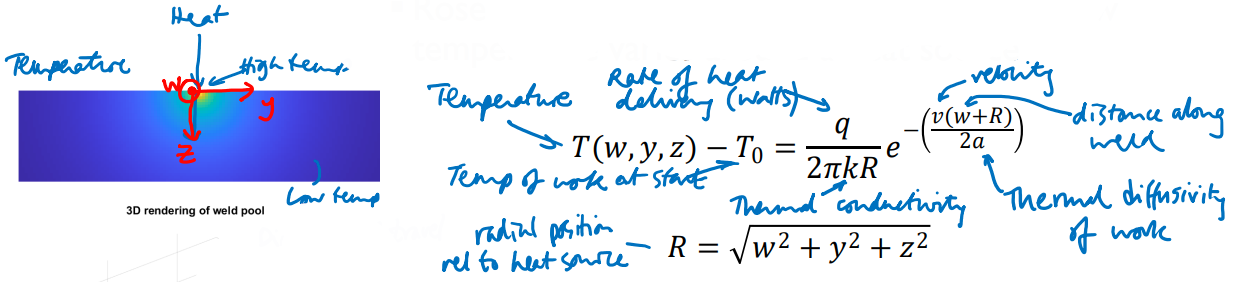 Heat
Temperature
High temp.
w
y
z
Low temp
3D rendering of weld pool
Temperature
Rate of heat
delivery (watts)
velocity
distance along
weld
T(w, y, z) − T₀ = q/(2πkR) e^−(v(w+R)/2a)
Temp of work at start
Thermal conductivity
Thermal diffusivity
of work
radial position
rel to heat source
R = √(w² + y² + z²)